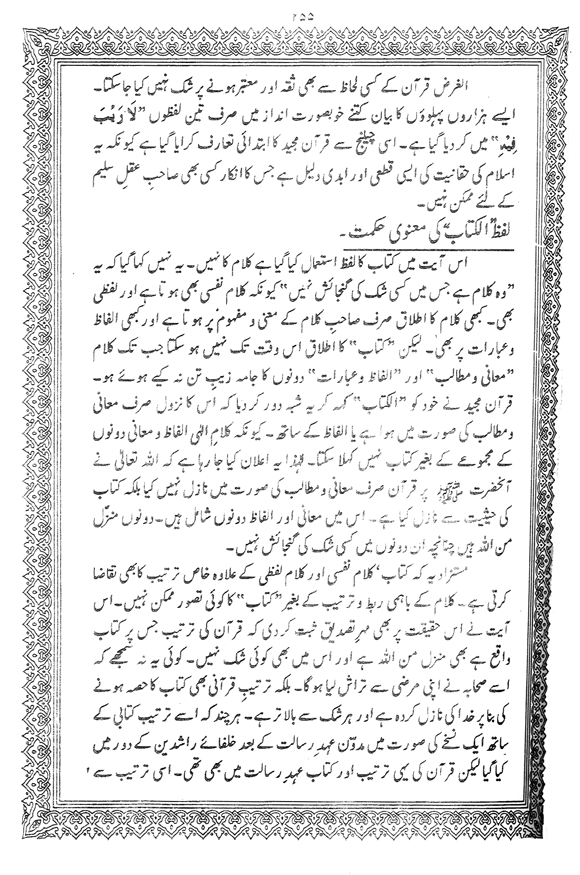 ۲۵۵
الغرض قرآن کے کسی لحاظ سے بھی ثقہ اور معتبر ہونے پر شک نہیں کیا جا سکتا۔
ایسے ہزاروں پہلوؤں کا بیان کتنے خوبصورت انداز میں صرف تین لفظوں ”لَا رَيْبَ
فِيْهِ“ میں کر دیا گیا ہے۔ اسی چیلنج سے قرآن مجید کا ابتدائی تعارف کرایا گیا ہے کیونکہ یہ
اسلام کی حقانیت کی ایسی قطعی اور ابدی دلیل ہے جس کا انکار کسی بھی صاحبِ عقلِ سلیم
کے لئے ممکن نہیں۔
لفظ ”الکتاب“ کی معنوی حکمت۔
اس آیت میں کتاب کا لفظ استعمال کیا گیا ہے کلام کا نہیں۔ یہ نہیں کہا گیا کہ یہ
”وہ کلام ہے جس میں کسی شک کی گنجائش نہیں“ کیونکہ کلام نفسی بھی ہوتا ہے اور لفظی
بھی۔ کبھی کلام کا اطلاق صرف صاحبِ کلام کے معنی و مفہوم پر ہوتا ہے اور کبھی الفاظ
و عبارات پر بھی۔ لیکن ”کتاب“ کا اطلاق اس وقت تک نہیں ہو سکتا جب تک کلام
”معانی و مطالب“ اور ”الفاظ و عبارات“ دونوں کا جامہ زیبِ تن نہ کیے ہوئے ہو۔
قرآن مجید نے خود کو ”الکتاب“ کہہ کر یہ شبہ دور کر دیا کہ اس کا نزول صرف معانی
و مطالب کی صورت میں ہوا ہے یا الفاظ کے ساتھ۔ کیونکہ کلامِ الٰہی الفاظ و معانی دونوں
کے مجموعے کے بغیر کتاب نہیں کہلا سکتا۔ لہٰذا یہ اعلان کیا جا رہا ہے کہ اللہ تعالٰی نے
آنحضرت ﷺ پر قرآن صرف معانی و مطالب کی صورت میں نازل نہیں کیا بلکہ کتاب
کی حیثیت سے نازل کیا ہے۔ اس میں معانی اور الفاظ دونوں شامل ہیں۔ دونوں منزّل
من اللہ ہیں چنانچہ ان دونوں میں کسی شک کی گنجائش نہیں۔
مستزاد یہ کہ کتاب‘ کلام نفسی اور کلام لفظی کے علاوہ خاص ترتیب کا بھی تقاضا
کرتی ہے۔ کلام کے باہمی ربط و ترتیب کے بغیر ”کتاب“ کا کوئی تصور ممکن نہیں۔ اس
آیت نے اس حقیقت پر بھی مہرِ تصدیق ثبت کر دی کہ قرآن کی ترتیب جس پر کتاب
واقع ہے بھی منزل من اللہ ہے اور اس میں بھی کوئی شک نہیں۔ کوئی یہ نہ سمجھے کہ
اسے صحابہ نے اپنی مرضی سے تراش لیا ہو گا۔ بلکہ ترتیبِ قرآنی بھی کتاب کا حصہ ہونے
کی بنا پر خدا کی نازل کردہ ہے اور ہر شک سے بالاتر ہے۔ ہر چند کہ اسے ترتیب کتابی کے
ساتھ ایک نسخے کی صورت میں مدوّن عہدِ رسالت کے بعد خلفائے راشدین کے دور میں
کیا گیا لیکن قرآن کی یہی ترتیب اور کتاب عہدِ رسالت میں بھی تھی۔ اسی ترتیب سے